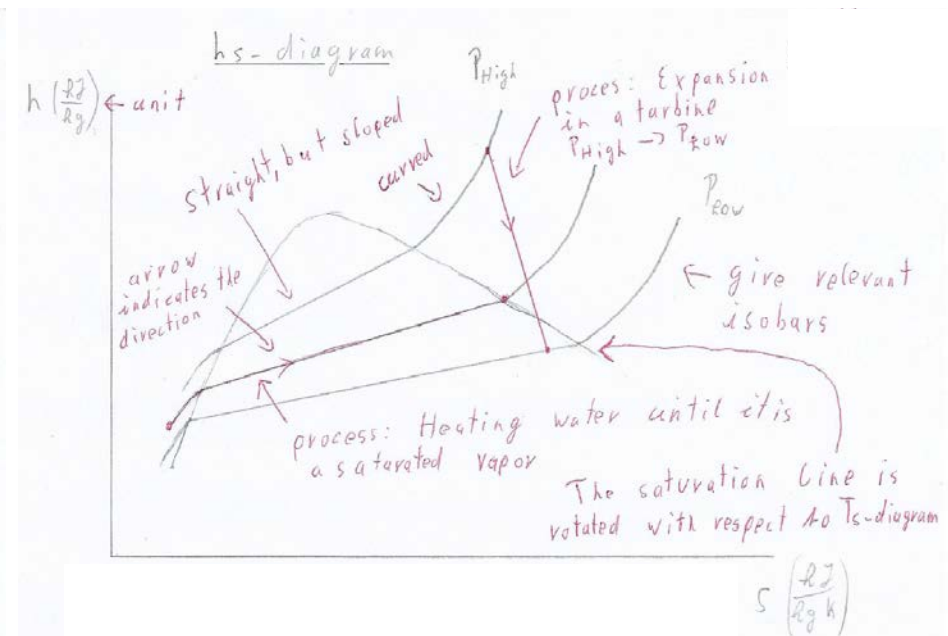 hs-diagram
h (kJ/kg) ← unit
P_High
proces: Expansion
in a turbine
P_High → P_Low
straight, but sloped
curved
P_Low
← give relevant
isobars
arrow
indicates the
direction
process: Heating water until it is
a saturated vapor
The saturation line is
rotated with respect to Ts-diagram
s (kJ/kg K)